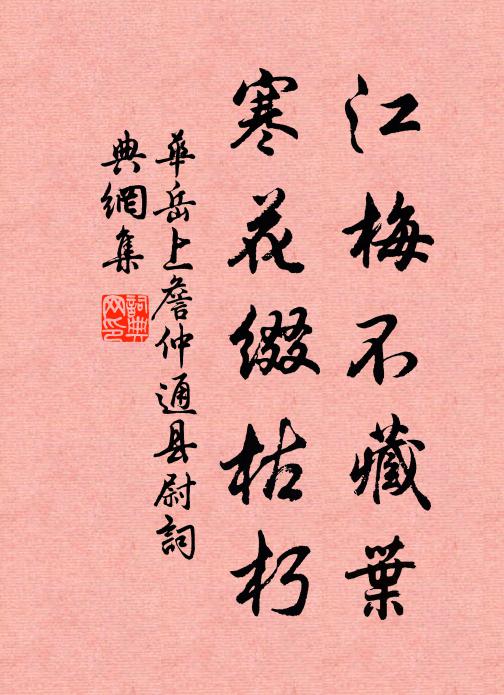 江梅不藏葉
寒花綴枯朽
華岳上詹仲通县尉詞
典網集
詞典網印